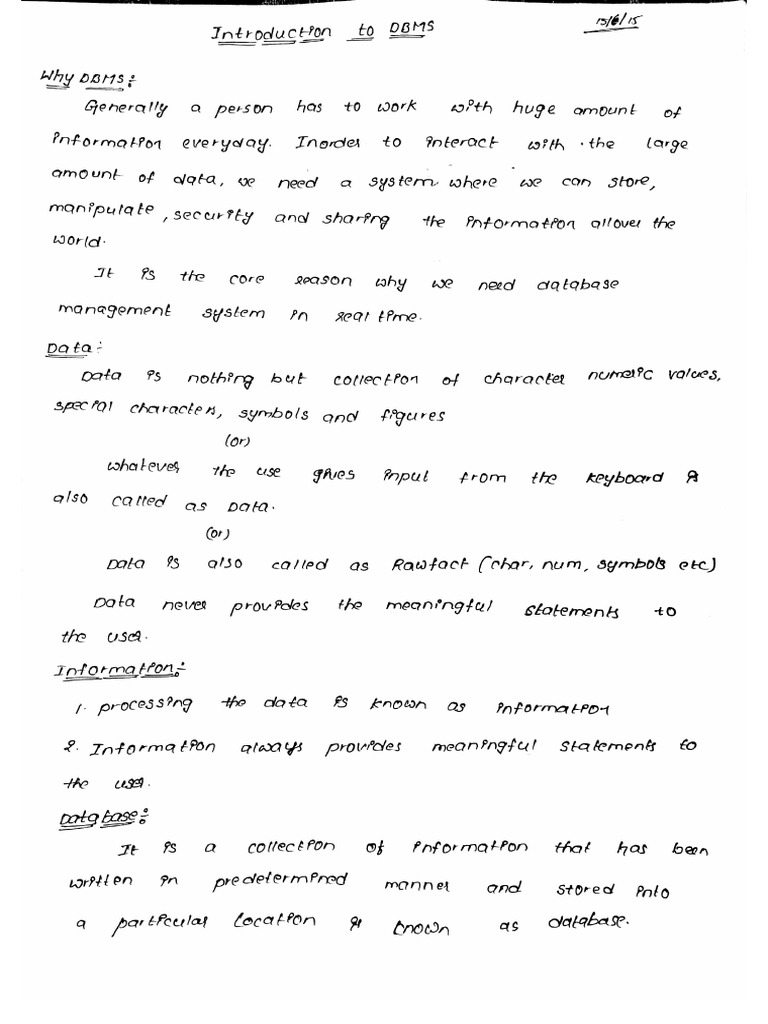 Introduction to DBMS
15/6/15
Why DBMS:
Generally a person has to work with huge amount of
information everyday. Inorder to interact with the large
amount of data, we need a system where we can store,
manipulate, security and sharing the information allover the
world.
It is the core reason why we need database
management system in real time.
Data:
Data is nothing but collection of character numeric values,
special characters, symbols and figures
(or)
whatever the use gives input from the keyboard is
also called as Data.
(or)
Data is also called as Rawfact (char, num, symbols etc)
Data never provides the meaningful statements to
the user.
Information:
1. processing the data is known as information
2. Information always provides meaningful statements to
the user.
Database:
It is a collection of information that has been
written in predetermined manner and stored into
a particular location is known as database.